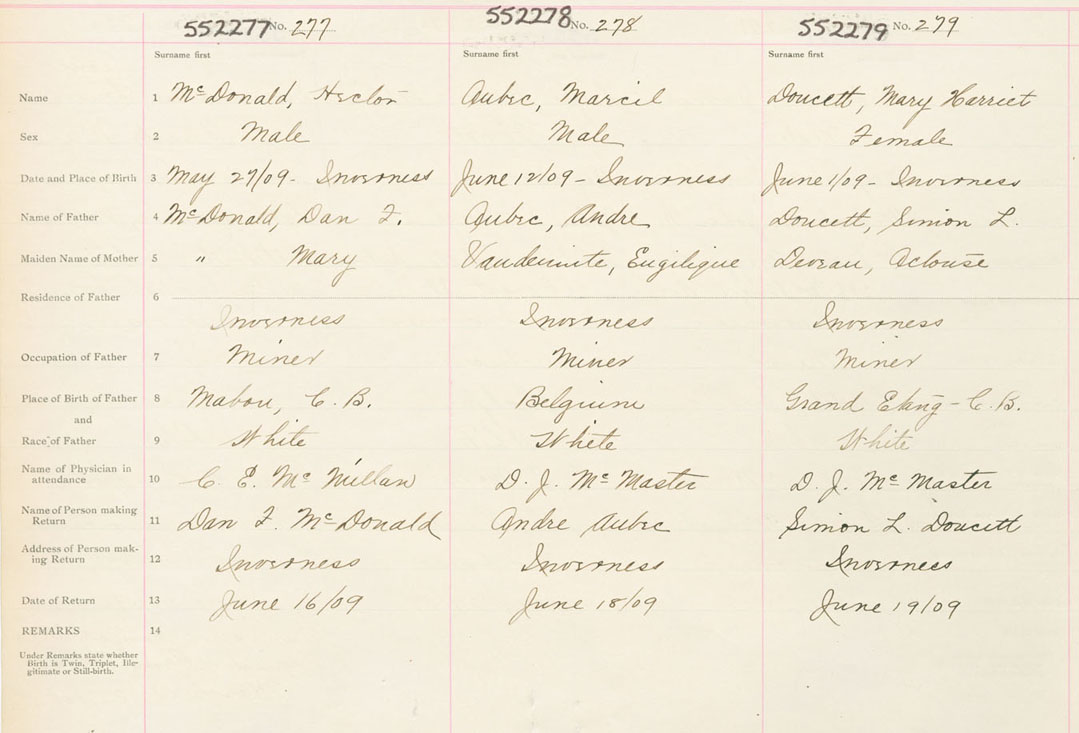 552277 No. 277 552278 No. 278 552279 No. 279
Surname first Surname first Surname first
Name 1 McDonald, Hector Aubec, Marcil Doucett, Mary Harriet
Sex 2 Male Male Female
Date and Place of Birth 3 May 27/09 - Inverness June 12/09 - Inverness June 1/09 - Inverness
Name of Father 4 McDonald, Dan F. Aubec, Andre Doucett, Simon L.
Maiden Name of Mother 5 " Mary Eugilique
Residence of Father 6
Inverness Inverness Inverness
Occupation of Father 7 Miner Miner Miner
Place of Birth of Father 8 Mabou, C. B. Belgium Grand Etang - C. B.
and
Race of Father 9 White White White
Name of Physician in
attendance 10 C. E. McMillan D. J. McMaster D. J. McMaster
Name of Person making
Return 11 Dan F. McDonald Andre Aubec Simon L. Doucett
Address of Person mak-
ing Return 12 Inverness Inverness Inverness
Date of Return 13 June 16/09 June 18/09 June 19/09
REMARKS 14
Under Remarks state whether
Birth is Twin, Triplet, Ille-
gitimate or Still-birth.